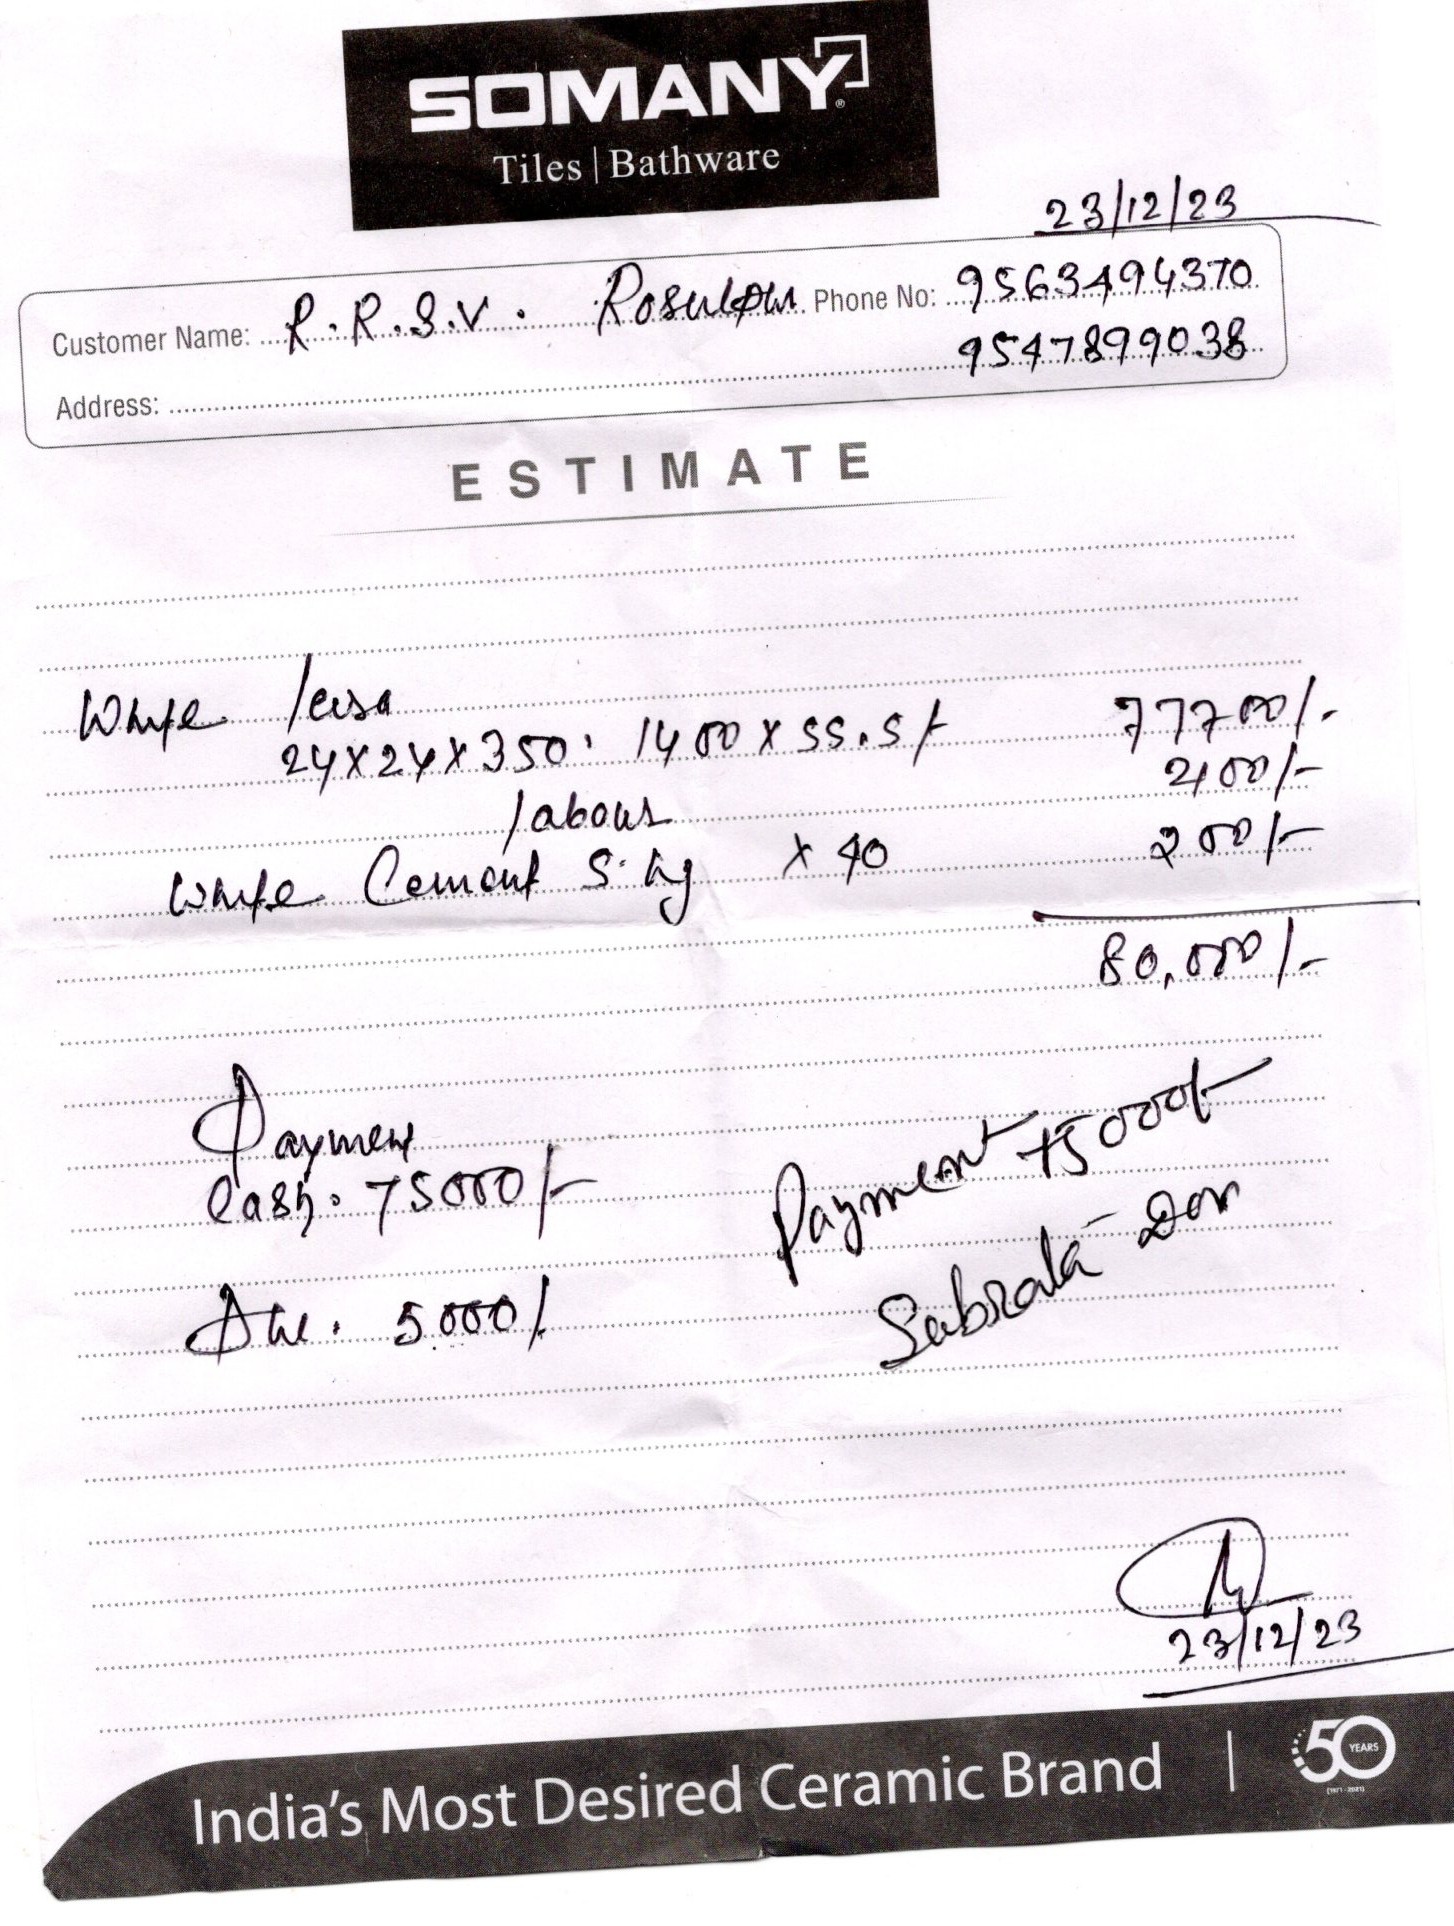 SOMANY®
Tiles | Bathware
23/12/23
Customer Name: R.R.S.V. Phone No: 9563494370
9547899038
Address:
ESTIMATE
White
24x24x350: 1400 x 55.5/- 77700/-
labour 2100/-
White Cement 5 kg x 40 200/-
80,000/-
Payment
Cash. 75000/-
Payment 75000/-
Subrata
Due. 5000/
23/12/23
India's Most Desired Ceramic Brand | 50 YEARS
(1971 - 2021)